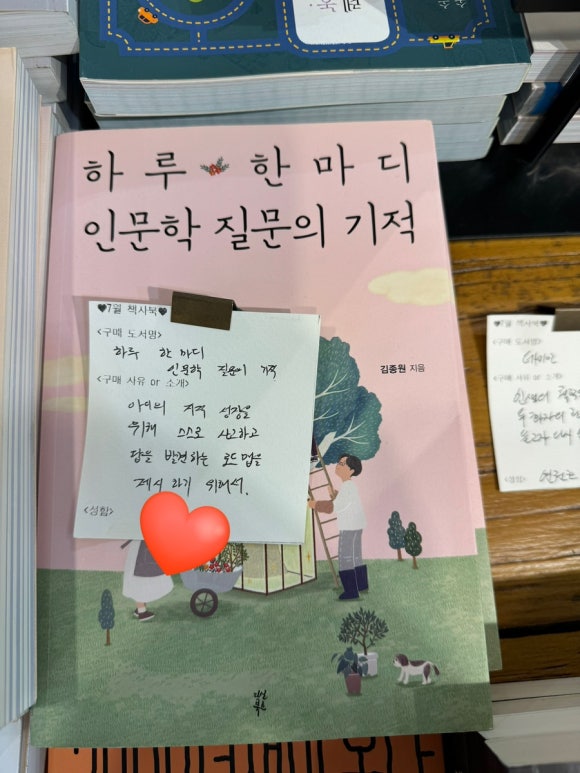 하루 한마디
인문학 질문의 기적
김종원 지음
♥7월 책사북♥
<구매 도서명>
하루 한마디
인문학 질문의 기적
<구매 사유 or 소개>
아이의 지적 성장을
위해 스스로 사고하고
답을 발견하는 로드맵을
제시 하기 위해서.
<성함>
♥7월 책사북♥
<구매 도서명>
<구매 사유 or 소개>
인생의
<성함>